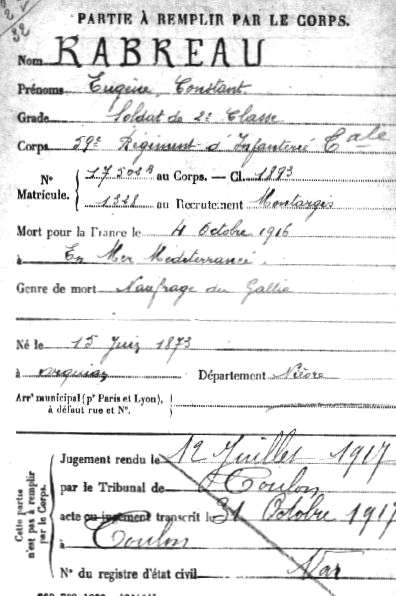 PARTIE À REMPLIR PAR LE CORPS.
Nom RABREAU
Prénoms Eugène, Constant
Grade Soldat de 2e Classe
Corps 59e Régiment d'Infanterie Cale
Nº Matricule. 17502 au Corps. — Cl. 1893
1328 au Recrutement Montargis
Mort pour la France le 4 Octobre 1916
à En Mer Méditerranée.
Genre de mort Naufrage du Gallia
Né le 15 Juin 1873
à Arquian Département Nièvre
Arrt municipal (pr Paris et Lyon), à défaut rue et Nº.
Cette partie n'est pas à remplir par le Corps.
Jugement rendu le 12 Juillet 1917
par le Tribunal de Toulon
acte ou jugement transcrit le 31 Octobre 1917
à Toulon
Nº du registre d'état civil Var